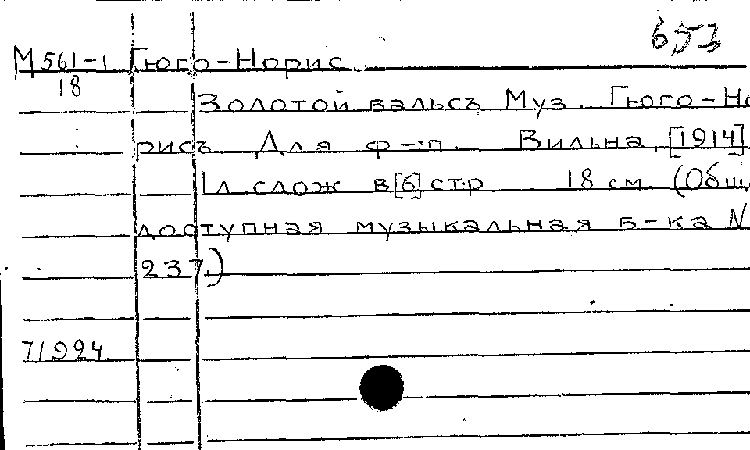 653
М 561-1 Гюго-Норис
18
Золотой вальсъ Муз. Гюго-Но
рисъ. Для ф-п. Вильна, [1914]
1 л слож в [6] стр 18 см (Общ
доступная музыкальная б-ка N
237)
71924